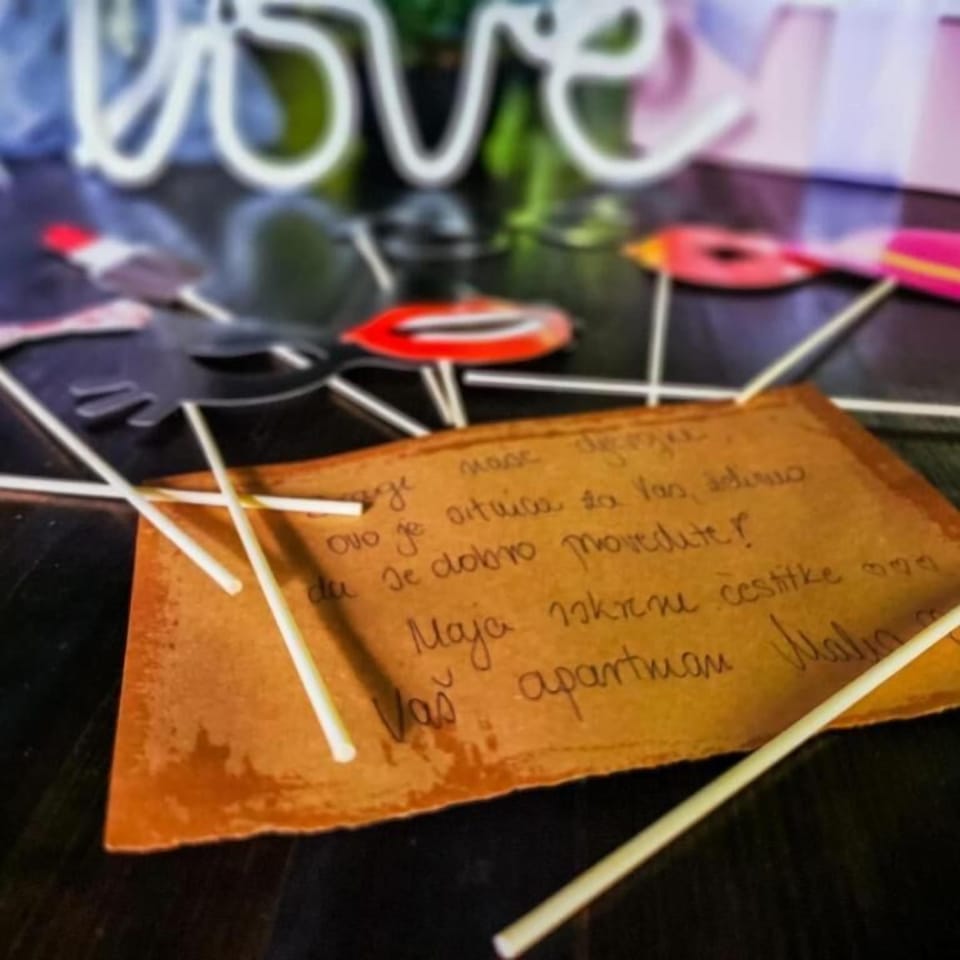 love
Drage naše djevojke,
ovo je sitnica za Vas, želimo
da se dobro provedete!
Maja iskrene čestitke ♡♡♡
Vaš apartman